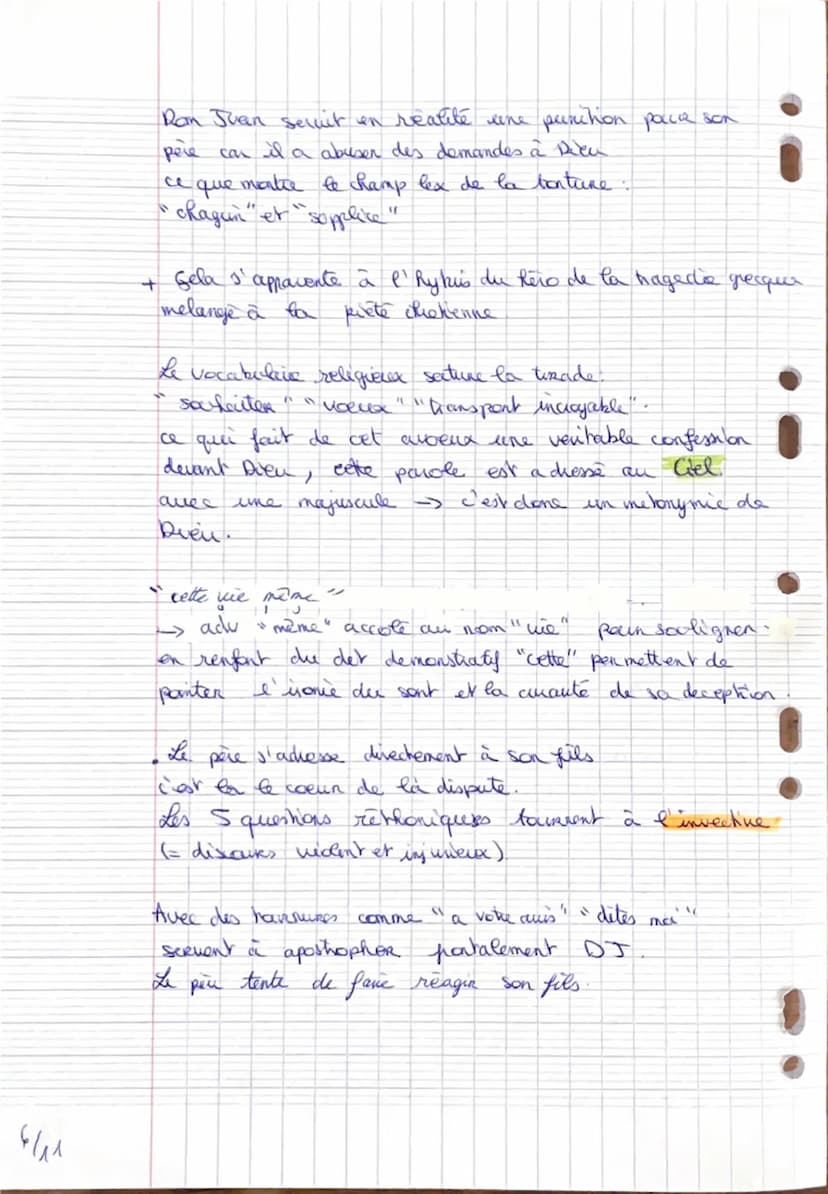 Don Juan serait en réalité une punition pour son
père car il a abuser des demandes à Dieu
ce que montre le champ lex de la torture :
"chagrin" et "supplice"
+ Cela s'apparente à l'Hybris du héro de la tragedie grecque
melangé à la piété chretienne
Le vocabulaire religieux sature la tirade.
"souhaiter" "voeux" "transport incroyable".
ce qui fait de cet aveux une veritable confession
devant Dieu, cette parole est adressé au Ciel.
avec une majuscule → c'est donc un metonymie de
Dieu.
"cette vie même"
→ adv "même" accolé au nom "vie" pour souligner.
en renfort du det demonstratif "cette" permettent de
pointer l'ironie du sort et la cruauté de sa deception.
. Le père s'adresse directement à son fils
c'est la le coeur de la dispute.
Les 5 questions réthoriques tournent à l'invective
(= discours violent et injurieux)
Avec des comme "a votre avis" "dites moi"
servent à apostropher frontalement DJ.
Le père tente de faire réagir son fils.
6/11